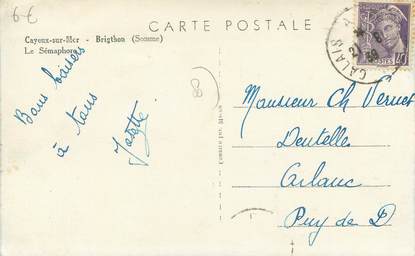 6€
CARTE POSTALE
Cayeux-sur-Mer - Brigthon (Somme)
Le Sémaphore
Bons baisers
à tous
Josette
8
Monsieur Ch Vernet
Dentelles
Arlanc
Puy de D
CALAIS
POSTES